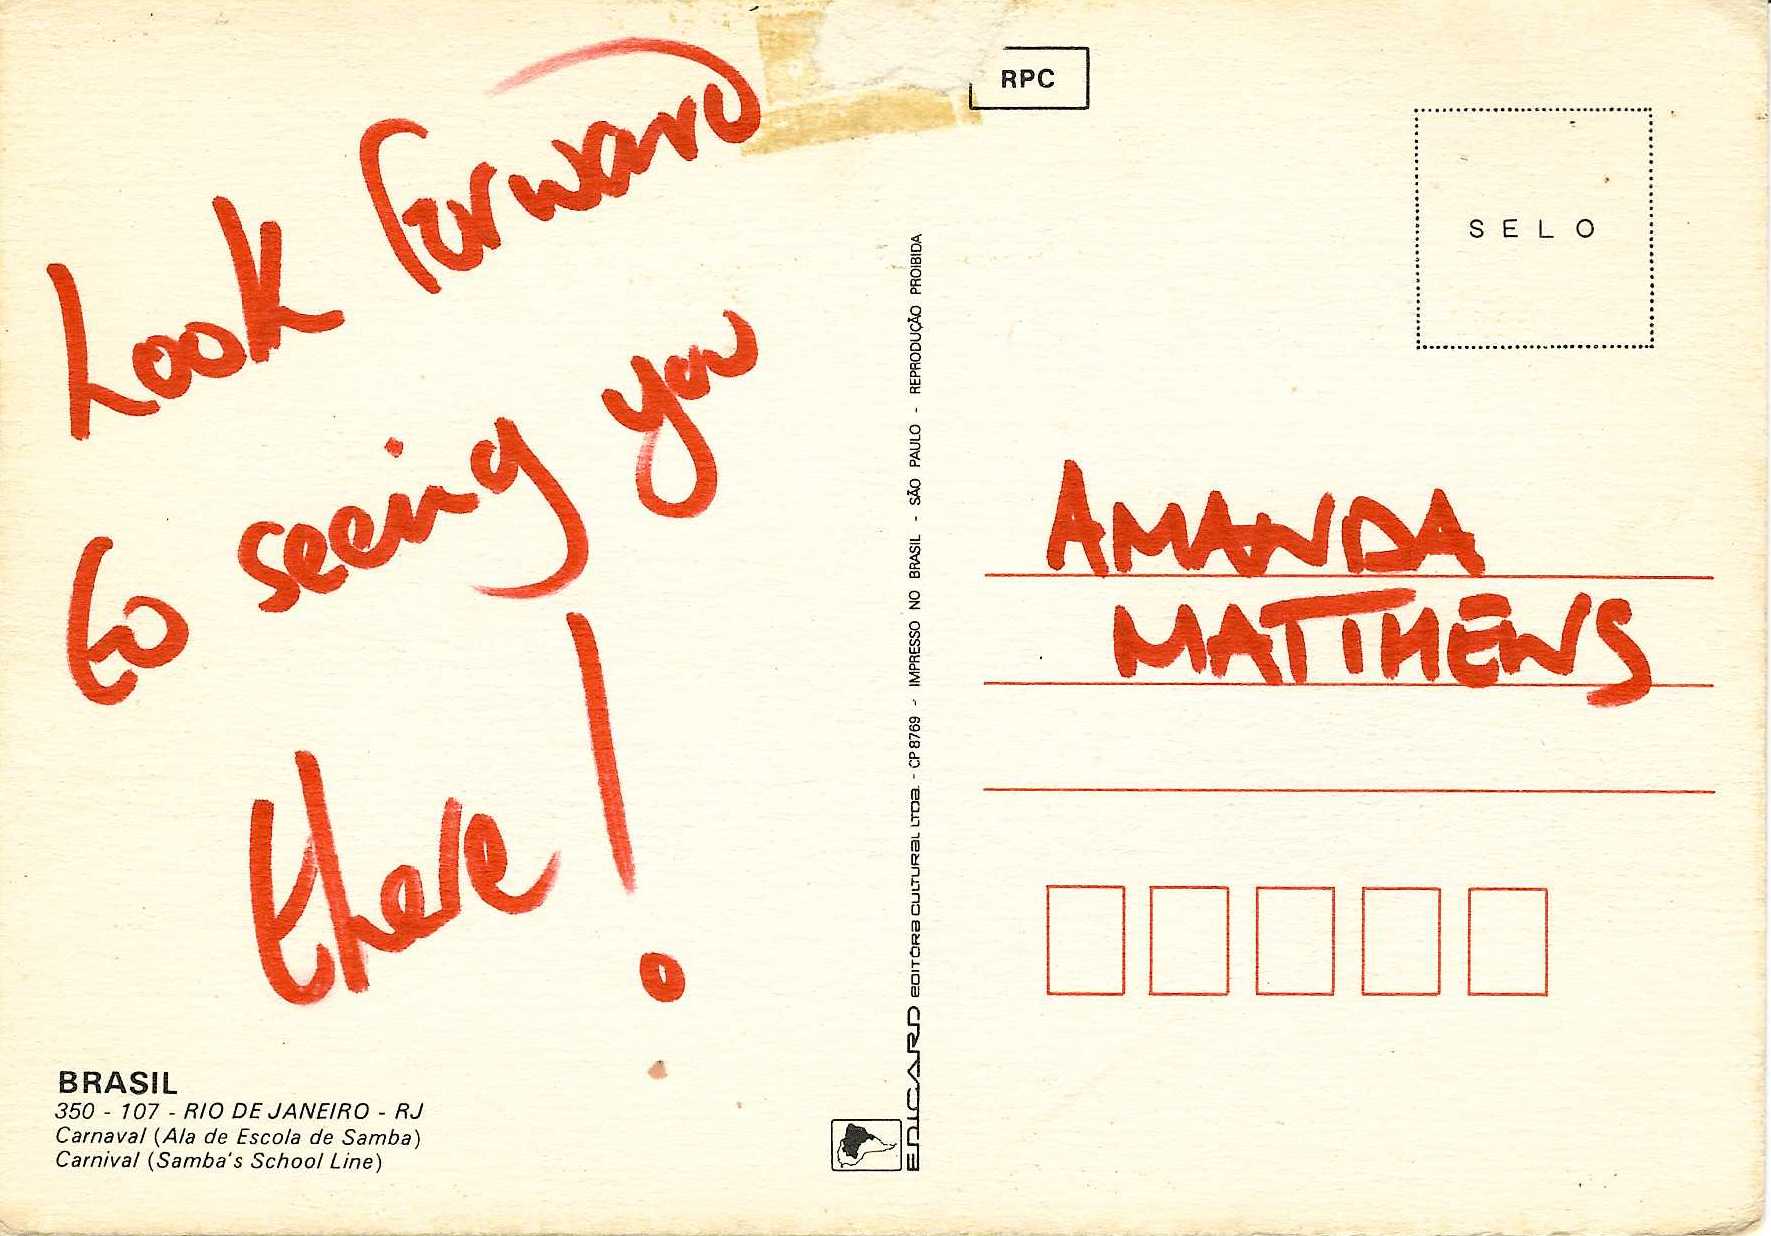 Look forward
to seeing you
there!
BRASIL
350 - 107 - RIO DE JANEIRO - RJ
Carnaval (Ala de Escola de Samba)
Carnival (Samba's School Line)
EDICARD EDITÔRA CULTURAL LTDA. - CP 8769 - IMPRESSO NO BRASIL - SÃO PAULO - REPRODUÇÃO PROIBIDA
RPC
SELO
AMANDA
MATTHEWS